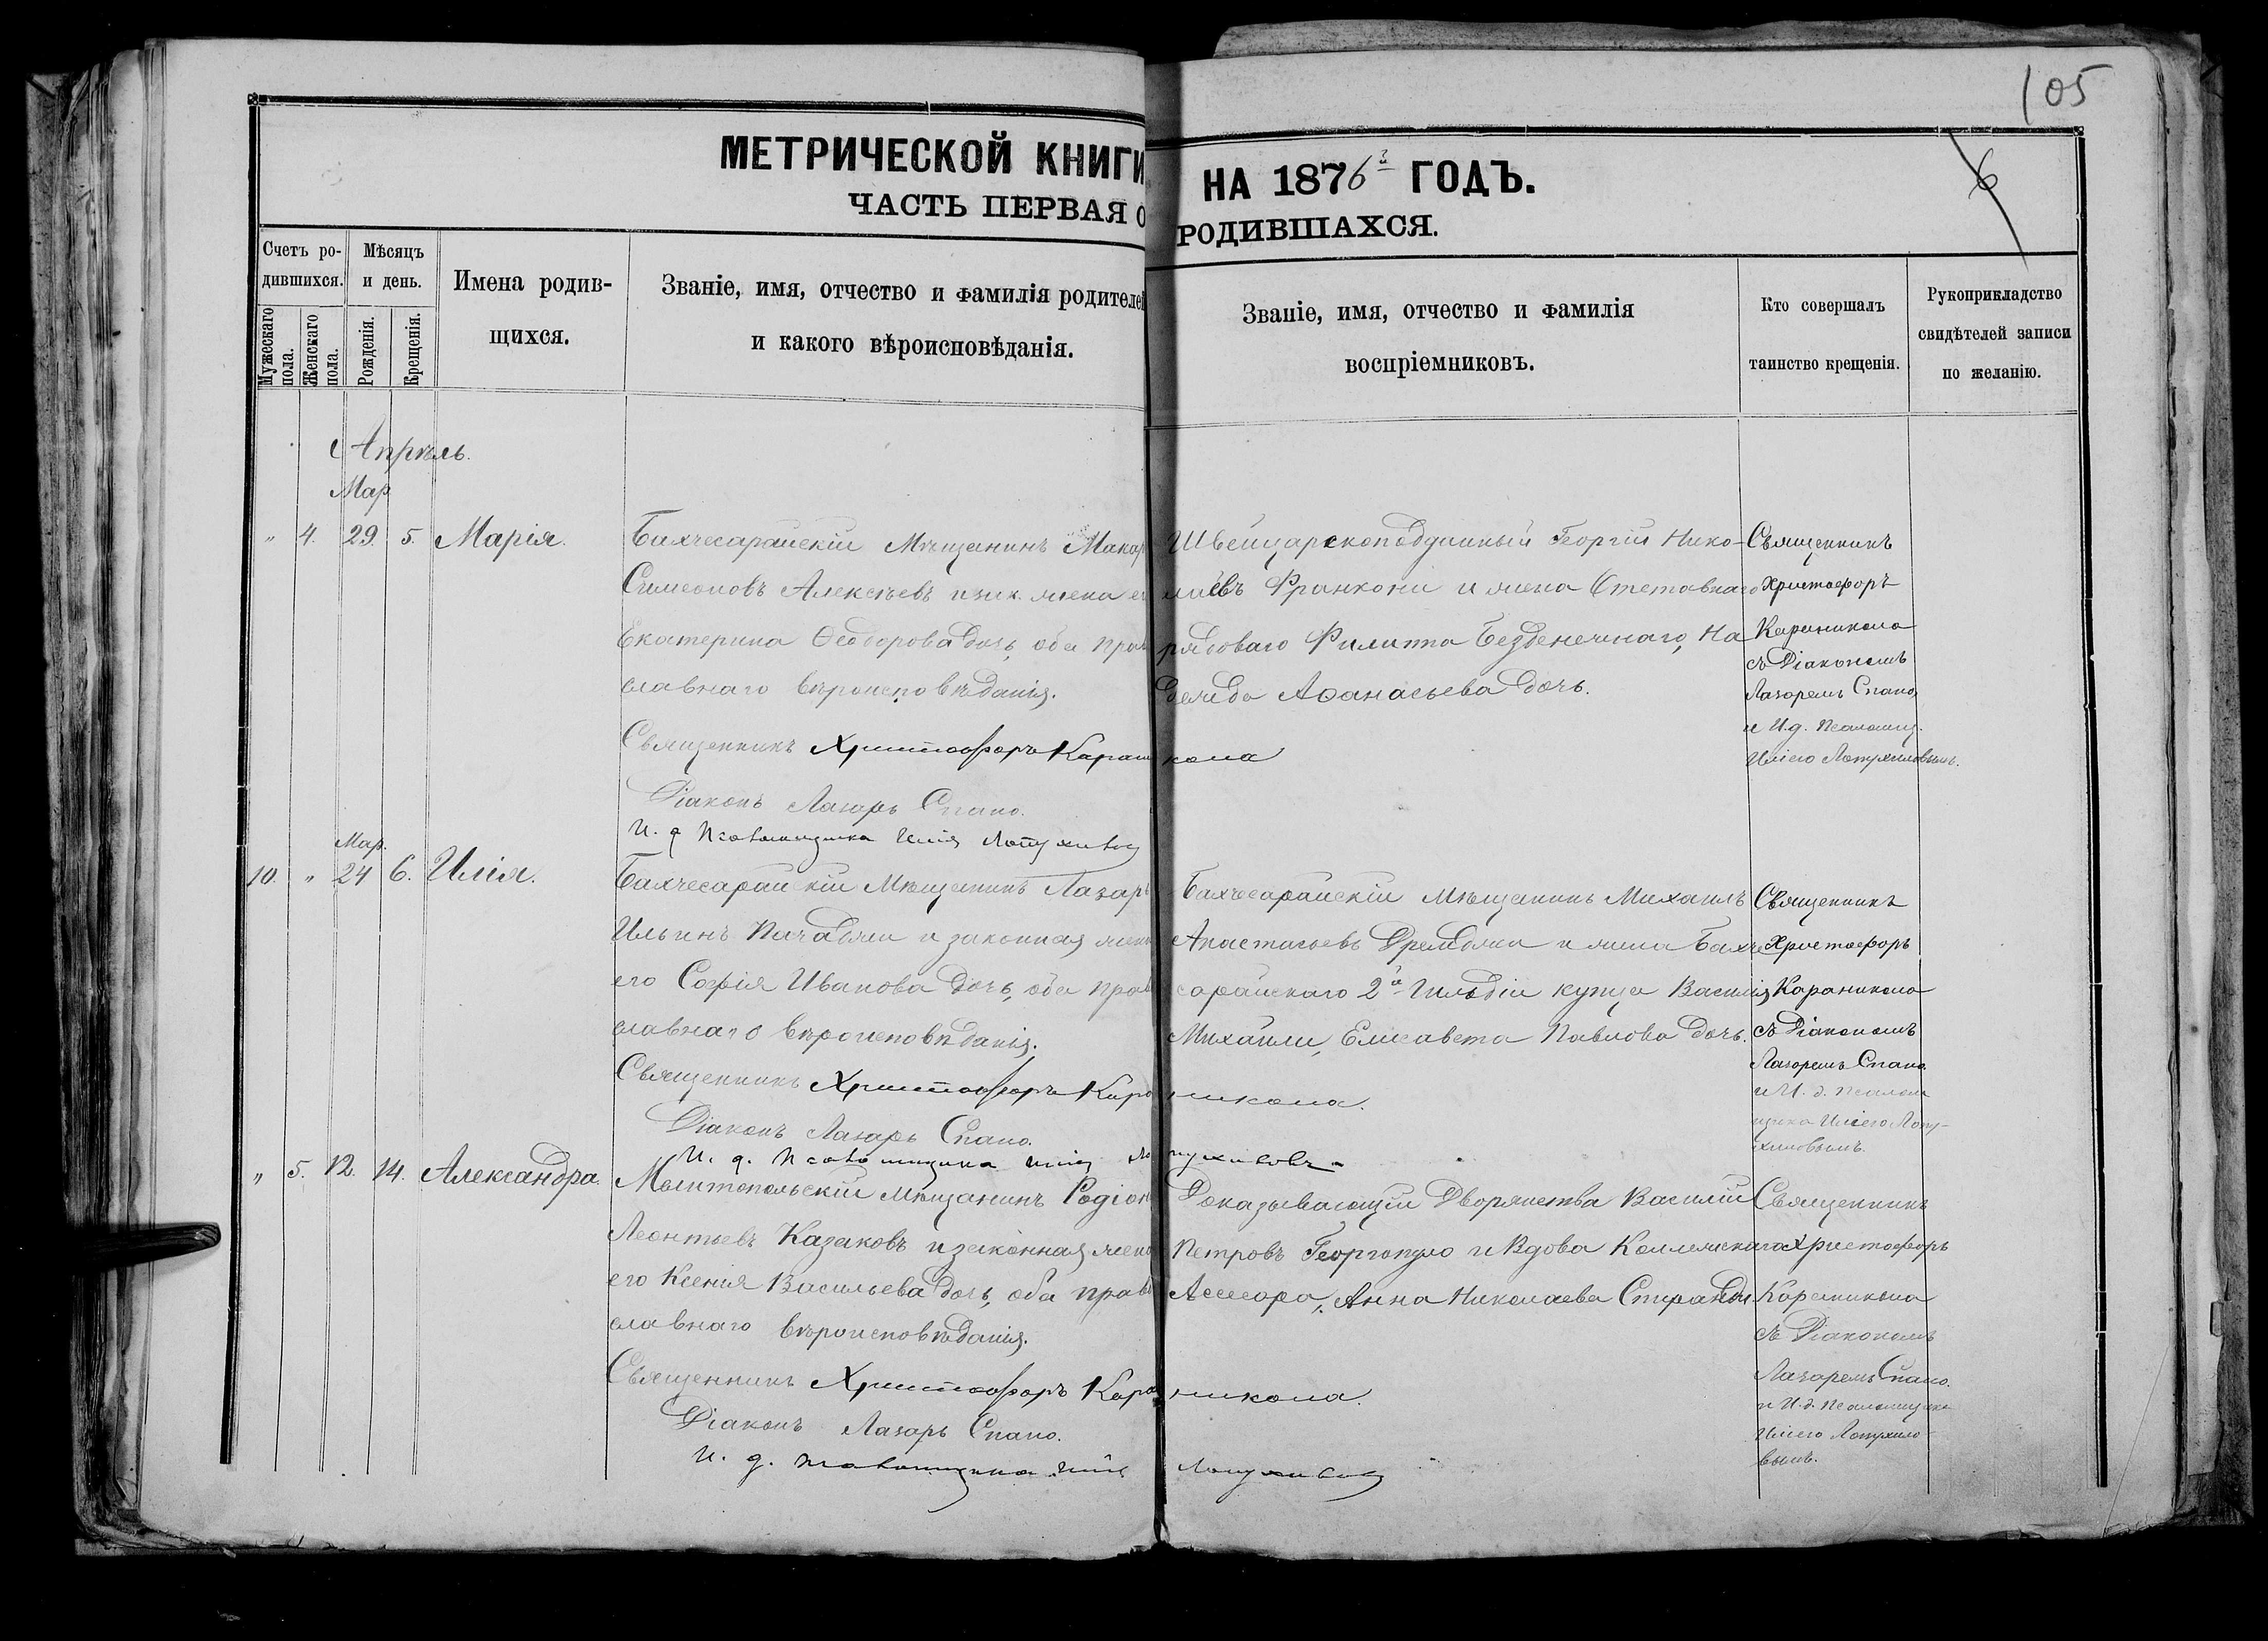 105
6
МЕТРИЧЕСКОЙ КНИГИ НА 1876й ГОДЪ.
ЧАСТЬ ПЕРВАЯ О РОДИВШАХСЯ.
Счетъ ро-
дившихся.
Мужескаго пола.
Женскаго пола.
Мѣсяцъ
и день.
Рожденія.
Крещенія.
Имена родив-
щихся.
Званіе, имя, отчество и фамилія родителей
и какого вѣроисповѣданія.
Званіе, имя, отчество и фамилія
воспріемниковъ.
Кто совершалъ
таинство крещенія.
Рукоприкладство
свидѣтелей записи
по желанію.
Апрѣль.
Мар
" 4. 29. 5. Марія.
Бахчесарайскій Мѣщанинъ Макар
Симеоновъ Алексѣевъ и зак. жена ег
Екатерина Ѳеодорова дочь, оба прав
славнаго вѣроисповѣданія.
Священникъ Христофоръ Караникола
Діаконъ Лазарь Спано.
И. д. Псаломщика Илія
Швейцарскоподданный Георгій Нико-
лаевъ Франкони и жена Отставнаго
рядоваго Филиппа Безденечнаго, На
дежда Аѳанасьева дочь.
Священникъ
Христофоръ
Караникола
съ Діакономъ
Лазаремъ Спано
и И.д. Псаломщ.
Иліею Лопухиновымъ.
Мар.
10. " 24 6. Илія.
Бахчесарайскій Мѣщанинъ Лазарь
Ильинъ Пачаджи и законная жена
его Софія Иванова дочь, оба прав
славнаго вѣроисповѣданія.
Священникъ Христофоръ Караникола.
Діаконъ Лазарь Спано.
И. д. Псаломщика Илія Лопухиновъ
Бахчесарайскій Мѣщанинъ Михаилъ
Анастасьевъ и жена Бахче
сарайскаго 2й Гильдіи купца Василія
Михаили, Елисавета Павлова дочь.
Священникъ
Христофоръ
Караникола
съ Діакономъ
Лазаремъ Спано.
и И. д. Псалом
щика Иліею Лопу-
хиновымъ.
" 5. 12. 14. Александра.
Мелитопольскій Мѣщанинъ Родіон
Леонтьевъ Казаковъ и законная жена
его Ксенія Васильева дочь, оба право
славнаго вѣроисповѣданія.
Священникъ Христофоръ Караникола.
Діаконъ Лазарь Спано.
И. д. Псаломщика Илія Лопухиновъ
Доказывающій Дворянства Василій
Петровъ Георгопуло и Вдова Коллежскаго
Ассесора, Анна Николаева
Священникъ
Христофоръ
Караникола
съ Діакономъ
Лазаремъ Спано.
и И. д. Псаломщика
Иліею Лопухино-
вымъ.